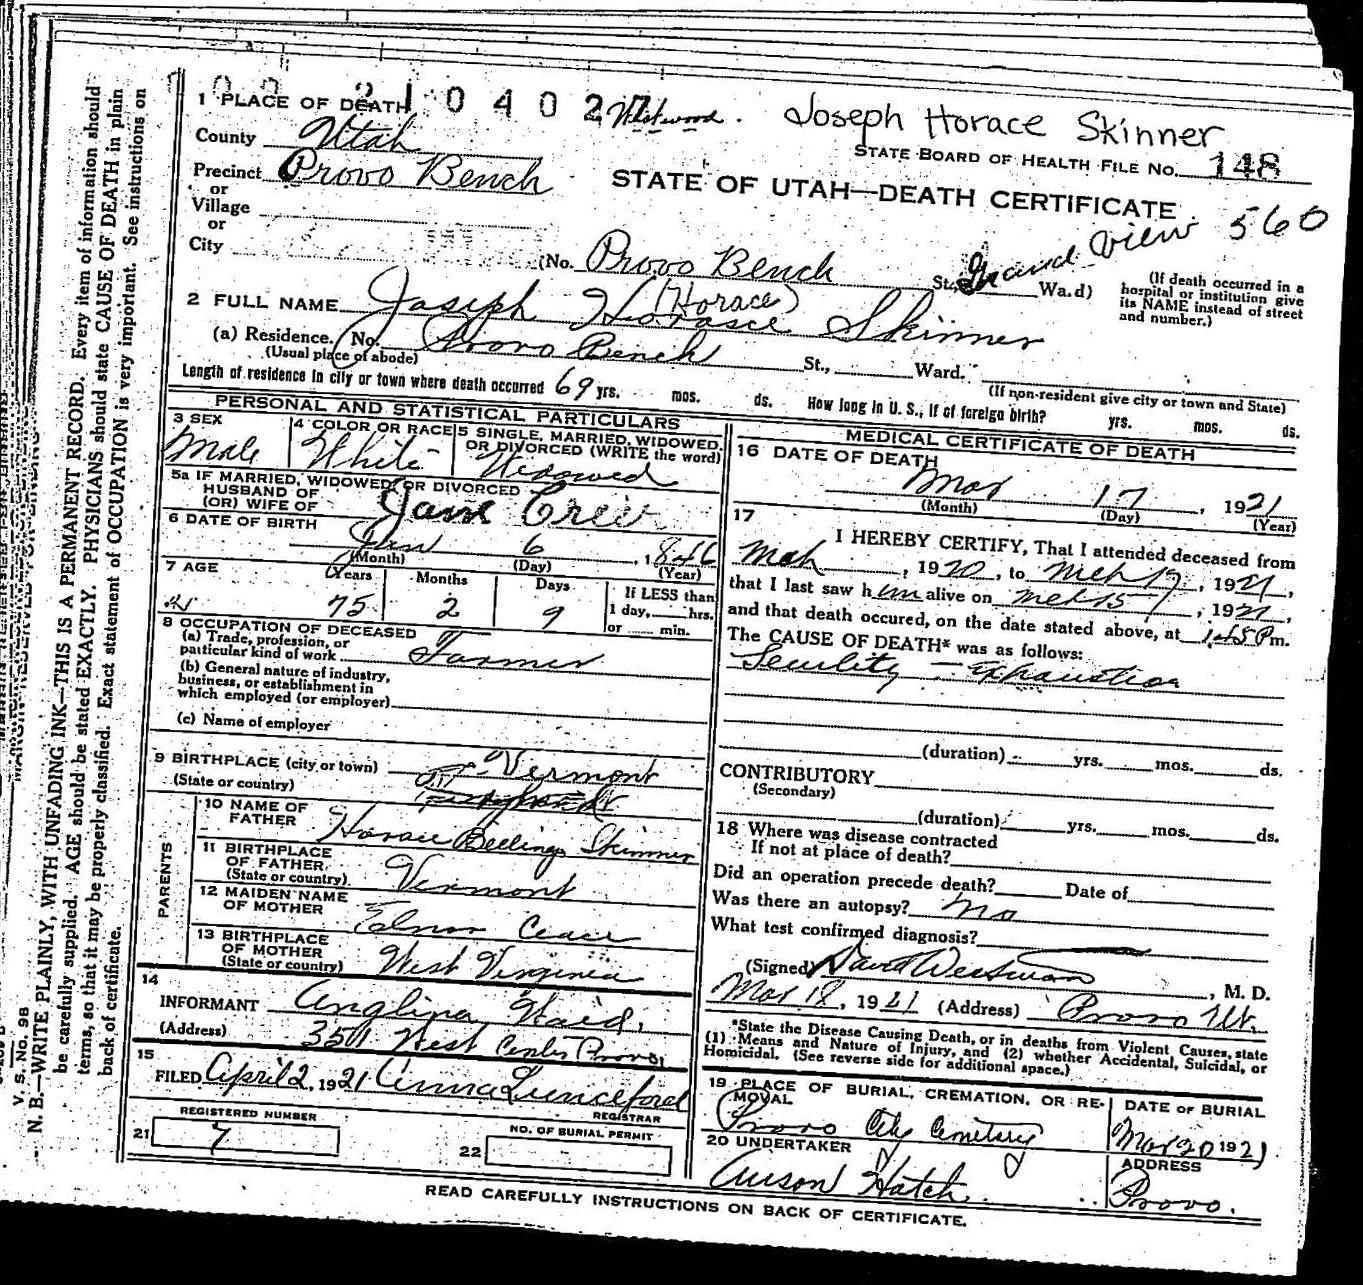 210402
Joseph Horace Skinner
1 PLACE OF DEATH
STATE BOARD OF HEALTH FILE No. 148
County Utah
Precinct Provo Bench
or
Village
or
City
STATE OF UTAH—DEATH CERTIFICATE
Grand View 560
(No. Provo Bench St., Ward)
(If death occurred in a
hospital or institution give
its NAME instead of street
and number.)
(Horace)
2 FULL NAME Joseph Horasce Skinner
(a) Residence. No. Provo Bench St., Ward.
(Usual place of abode)
(If non-resident give city or town and State)
Length of residence in city or town where death occurred 69 yrs. mos. ds. How long in U. S., if of foreign birth? yrs. mos. ds.
PERSONAL AND STATISTICAL PARTICULARS
3 SEX Male
4 COLOR OR RACE White
5 SINGLE, MARRIED, WIDOWED,
OR DIVORCED (WRITE the word)
Widowed
5a IF MARRIED, WIDOWED, OR DIVORCED
HUSBAND OF
(OR) WIFE OF Jane Creer
6 DATE OF BIRTH
Jan 6, 1846
(Month) (Day) (Year)
7 AGE Years Months Days
75 2 9
If LESS than
1 day, hrs.
or min.
8 OCCUPATION OF DECEASED
(a) Trade, profession, or
particular kind of work Farmer
(b) General nature of industry,
business, or establishment in
which employed (or employer)
(c) Name of employer
9 BIRTHPLACE (city or town) Vermont
(State or country)
PARENTS
10 NAME OF
FATHER Horace Beelings Skinner
11 BIRTHPLACE
OF FATHER
(State or country) Vermont
12 MAIDEN NAME
OF MOTHER
13 BIRTHPLACE
OF MOTHER
(State or country) West Virginia
14
INFORMANT Anglina
(Address) 350 West Center Provo
15
FILED April 2, 1921 Anna Lunceford
REGISTRAR
REGISTERED NUMBER
21 7
NO. OF BURIAL PERMIT
22
MEDICAL CERTIFICATE OF DEATH
16 DATE OF DEATH
Mar 17, 1921
(Month) (Day) (Year)
17
I HEREBY CERTIFY, That I attended deceased from
Mch, 1920, to Mch 17, 1921,
that I last saw him alive on Mch 15, 1921,
and that death occured, on the date stated above, at 1:45 P m.
The CAUSE OF DEATH* was as follows:
Senility – Exhaustion
(duration) yrs. mos. ds.
CONTRIBUTORY
(Secondary)
(duration) yrs. mos. ds.
18 Where was disease contracted
If not at place of death?
Did an operation precede death? Date of
Was there an autopsy? No
What test confirmed diagnosis?
(Signed) David Westwood, M. D.
Mar 18, 1921 (Address) Provo Ut.
*State the Disease Causing Death, or in deaths from Violent Causes, state
(1) Means and Nature of Injury, and (2) whether Accidental, Suicidal, or
Homicidal. (See reverse side for additional space.)
19 PLACE OF BURIAL, CREMATION, OR RE-
MOVAL
Provo City Cemetery
DATE OF BURIAL
Mar 20 1921
20 UNDERTAKER
Anson Hatch
ADDRESS
Provo.
READ CAREFULLY INSTRUCTIONS ON BACK OF CERTIFICATE.
V. S. No. 98
N. B.—WRITE PLAINLY, WITH UNFADING INK—THIS IS A PERMANENT RECORD. Every item of information should
be carefully supplied. AGE should be stated EXACTLY. PHYSICIANS should state CAUSE OF DEATH in plain
terms, so that it may be properly classified. Exact statement of OCCUPATION is very important. See instructions on
back of certificate.